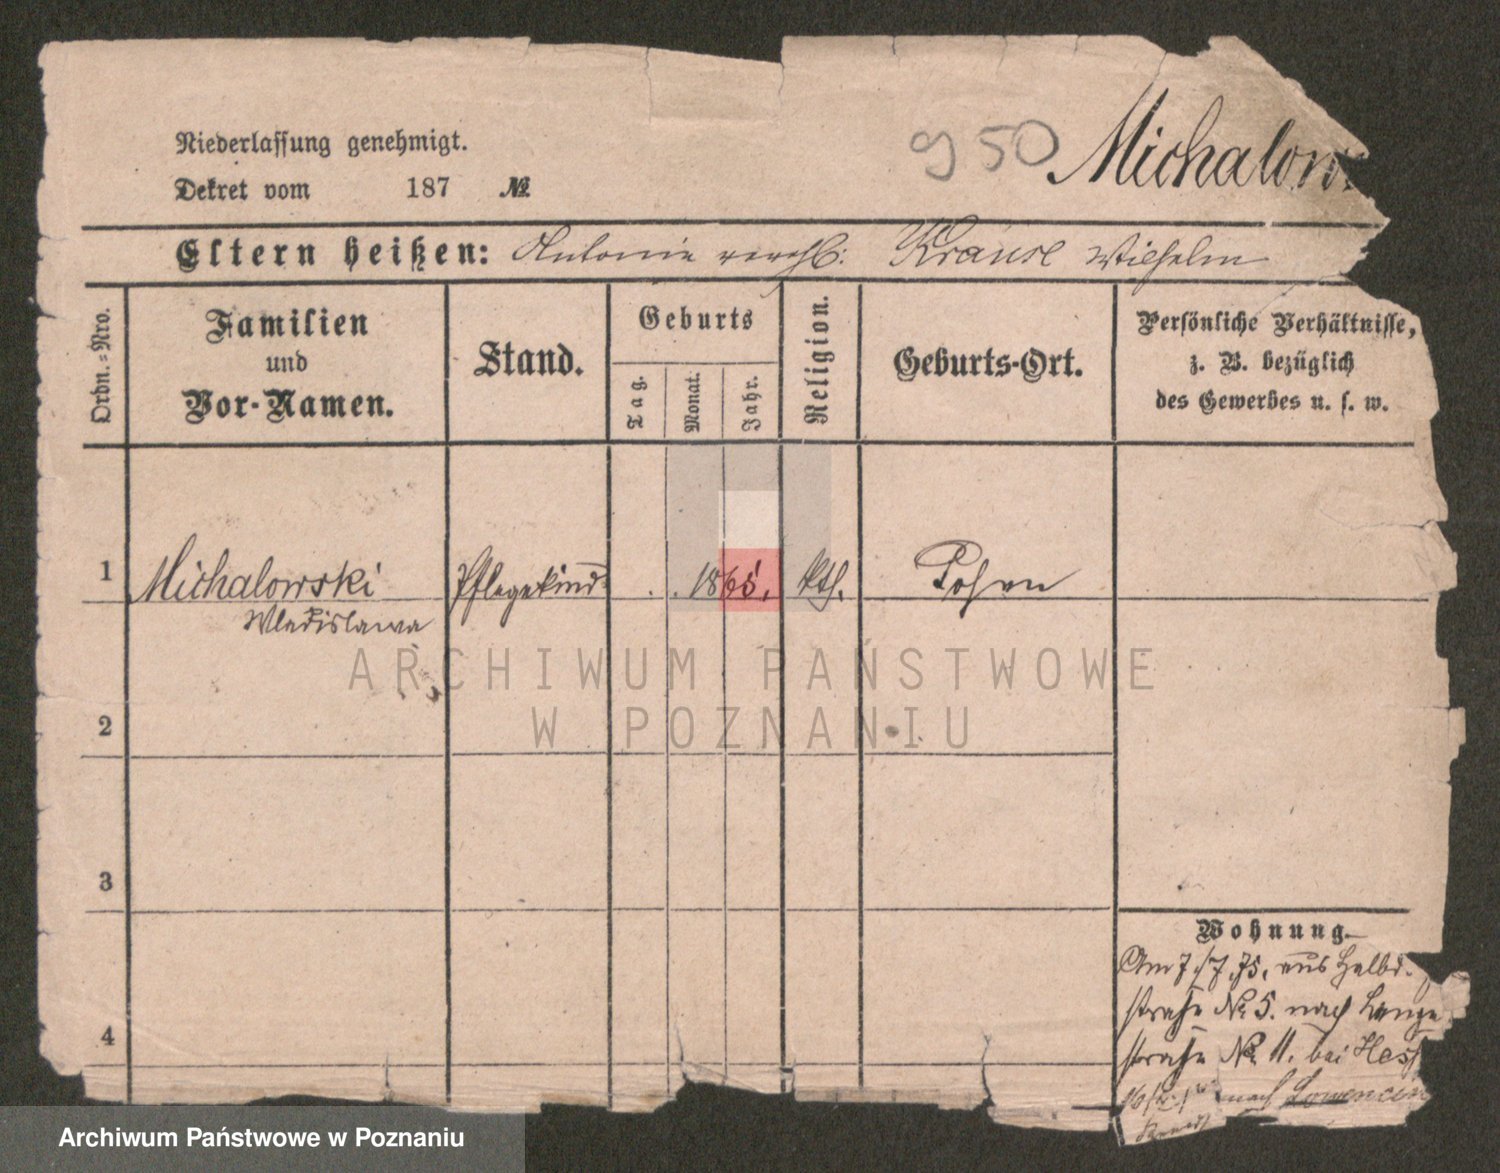 Niederlassung genehmigt.
950 Michalow
Dekret vom 187 №
Eltern heißen: Antonie verehl: Krause Wilhelm
Ordn.=Nro.
Familien
und
Vor-Namen.
Stand.
Geburts
Tag.
Monat.
Jahr.
Religion.
Geburts-Ort.
Persönliche Verhältnisse,
z. B. bezüglich
des Gewerbes u. s. w.
1 Michalowski Pflegekind 1865. kth. Posen
Wladislawa
ARCHIWUM PAŃSTWOWE
W POZNANIU
2
3
4
Wohnung.
Am 7./7. 75. aus Halbd.
straße No 5. nach Lange
straße No 11. bei Hess
nach
Archiwum Państwowe w Poznaniu